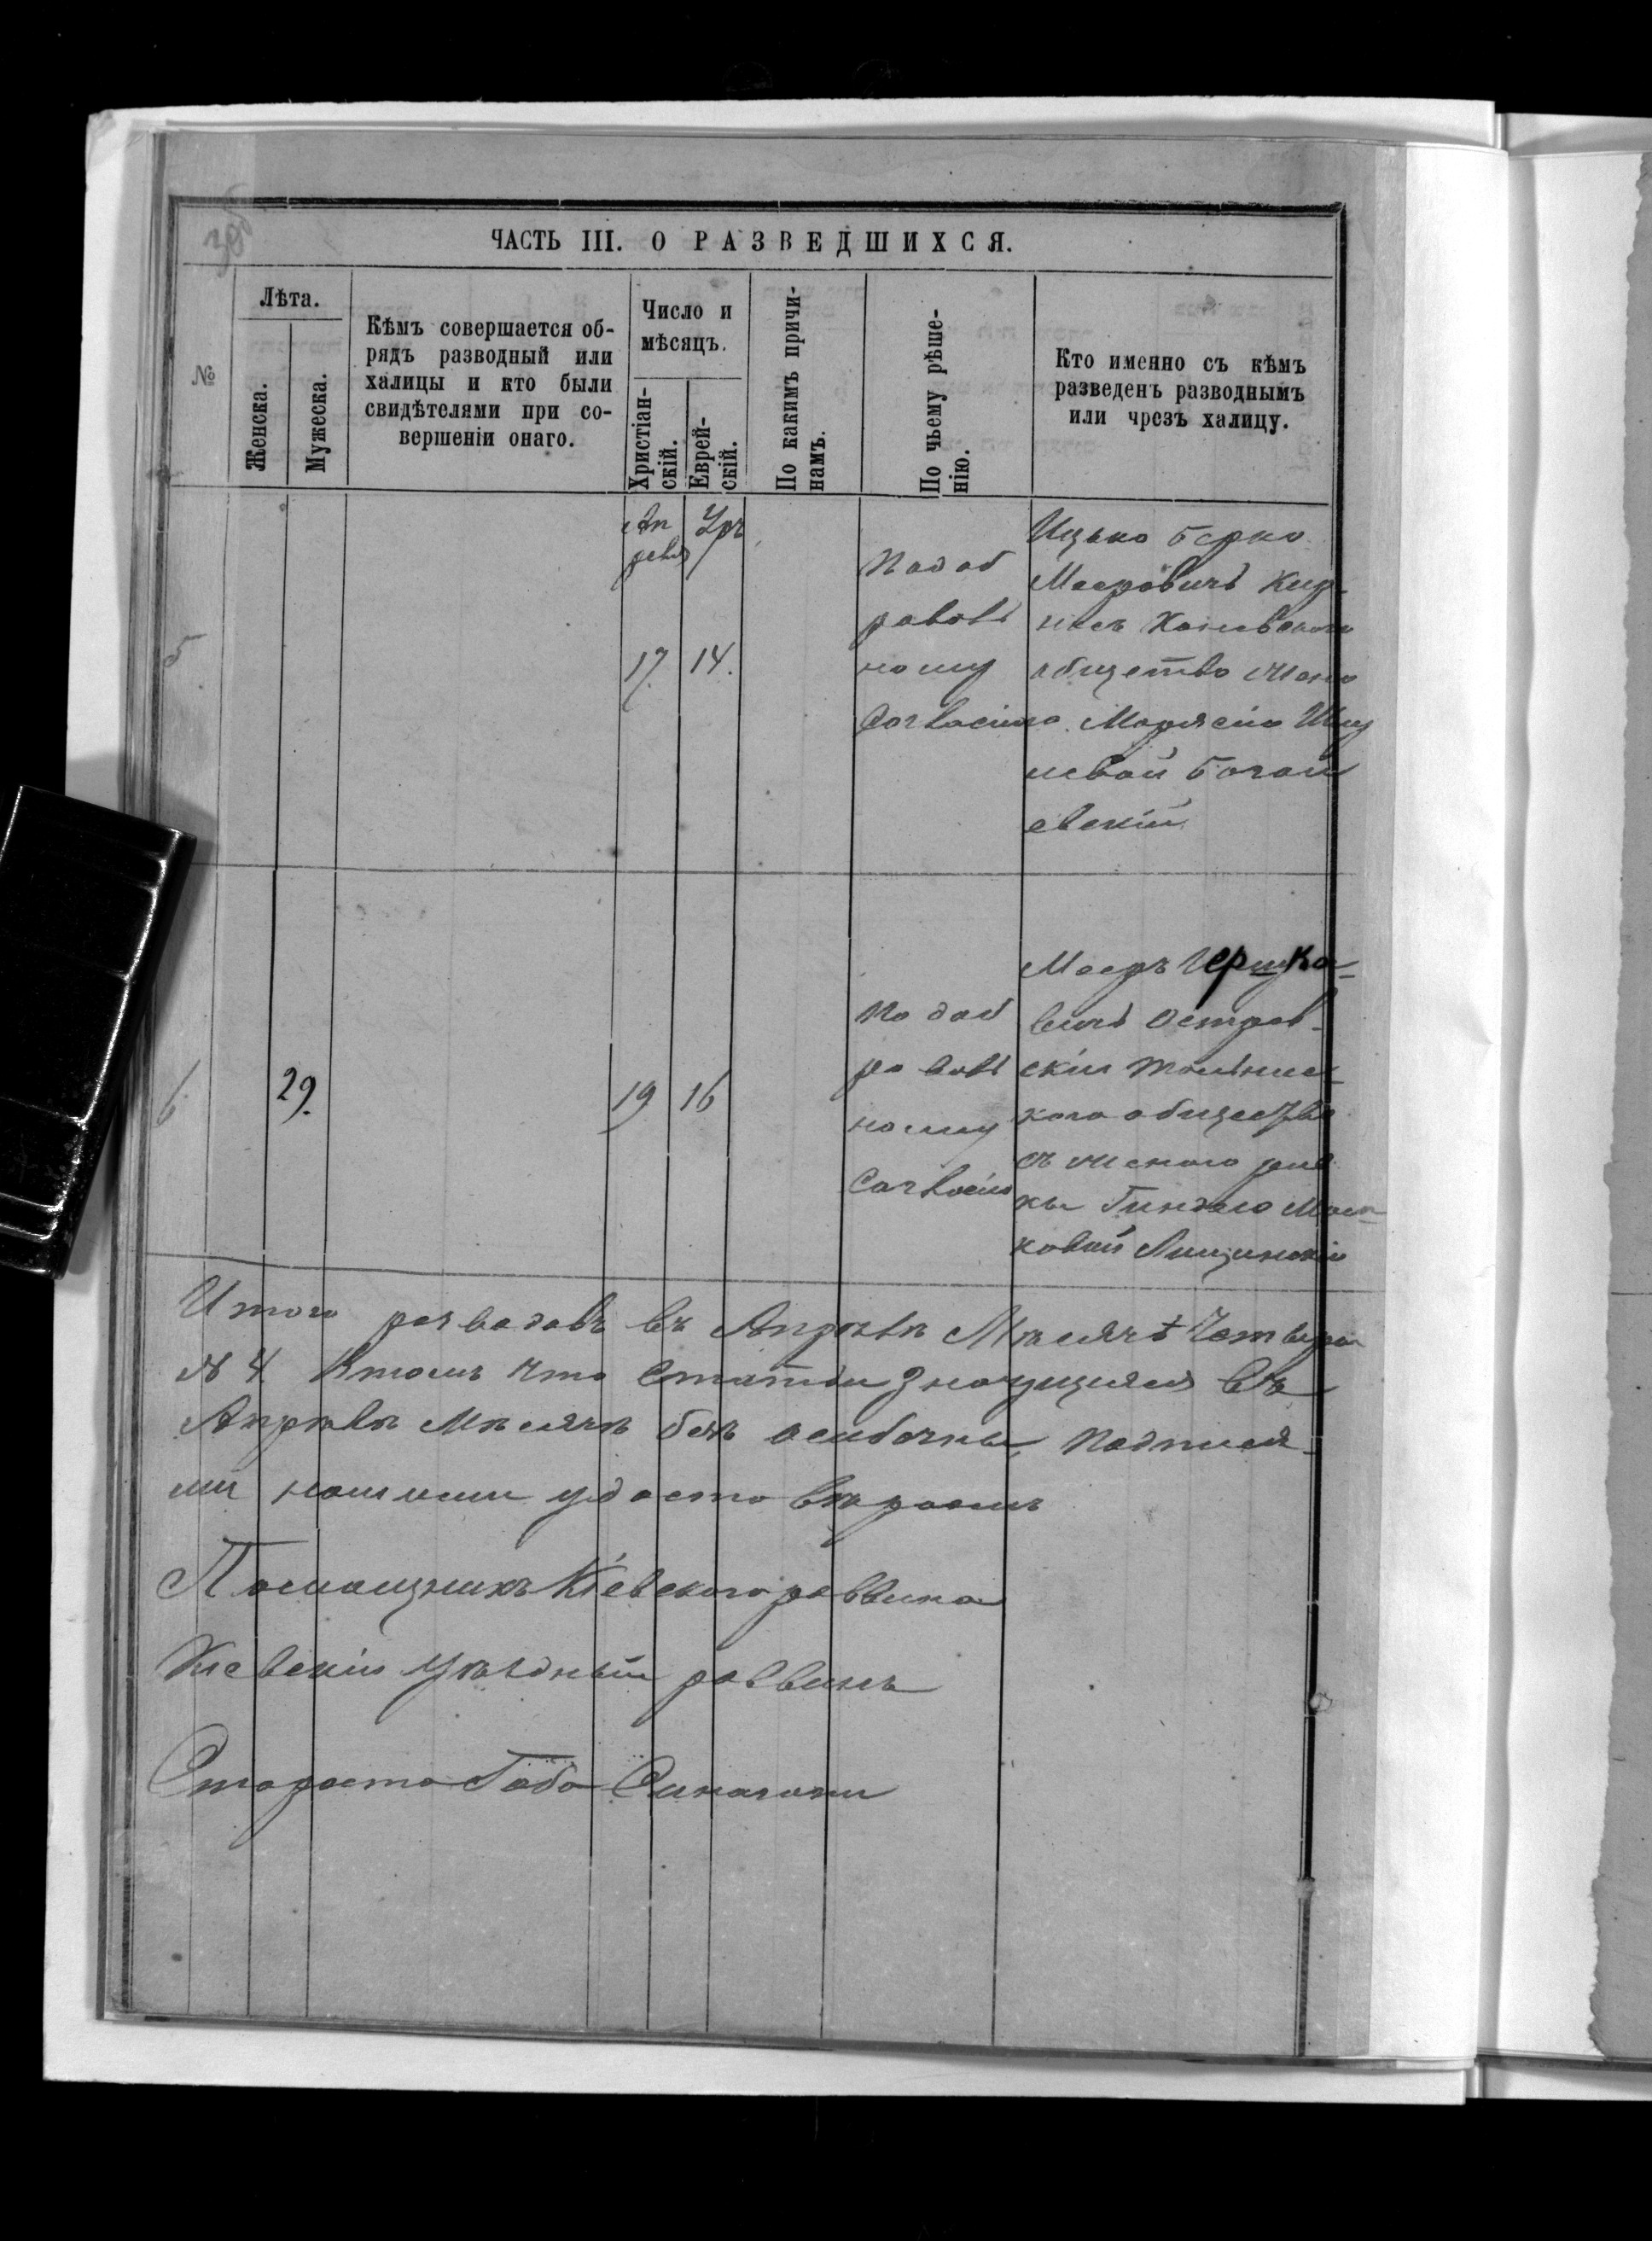 ЧАСТЬ III. О РАЗВЕДШИХСЯ.
№
Лѣта.
Женска.
Мужеска.
Кѣмъ совершается об-
рядъ разводный или
халицы и кто были
свидѣтелями при со-
вершеніи онаго.
Число и
мѣсяцъ.
Христіан-
скій.
Еврей-
скій.
По какимъ причи-
намъ.
По чьему рѣше-
нію.
Кто именно съ кѣмъ
разведенъ разводнымъ
или чрезъ халицу.
5
Ап
реля
17
14.
по об
равов
ному
Согласію
Ицько Берко
Мееровичъ Кир-
Каневскаго
общество
евскій
6
29.
19
16
по об
ра вов
ному
Согласію
Мееръ Гершко-
вичъ Остров-
скій
каго общества
съ женою рив
кы Гиндею Мош
ковой
Итого разводовъ въ Апрѣлѣ Мѣсяцѣ Четыре
№ 4 Втомъ что Статьи значущіяся въ
Апрѣлѣ Мѣсяцѣ безъ ошибочны, подпися-
ми нашими удостовѣряемъ
Помощникъ Кіевского раввина
Кіевскій Уѣздный раввинъ
Староста Габа Синагоги